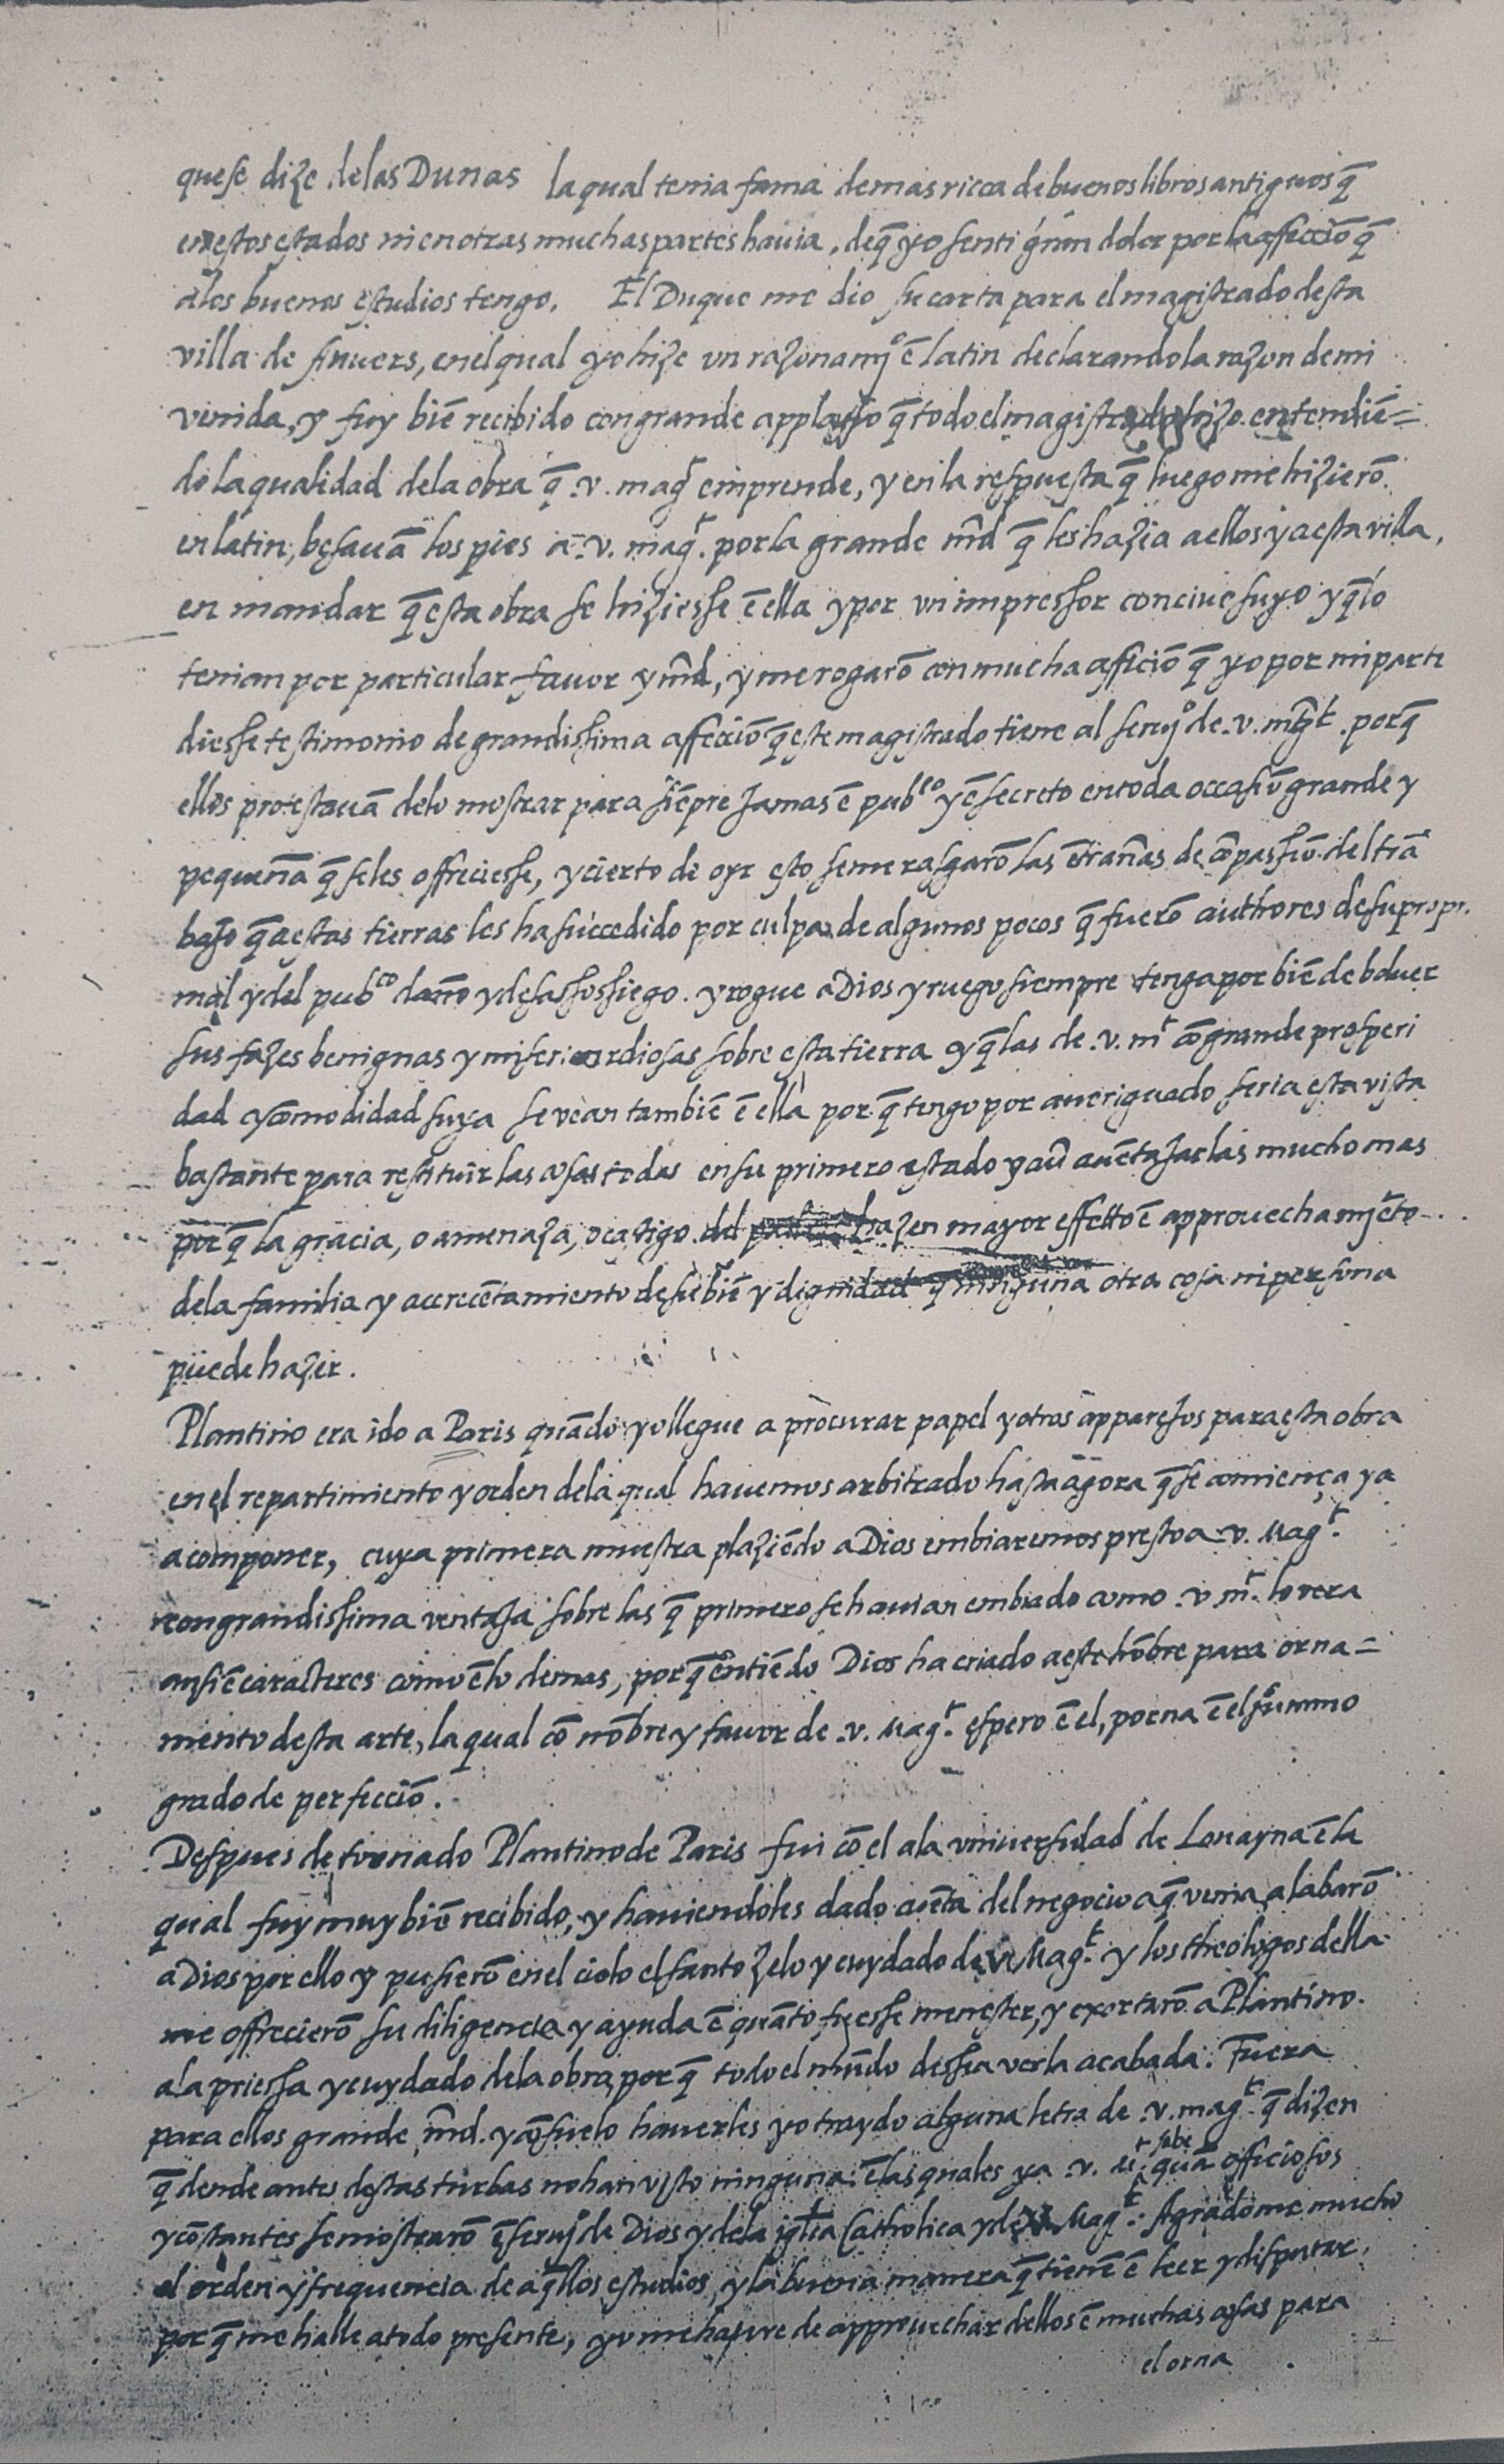 que se dize de las Dunas la qual tenia fama de mas ricca de buenos libros antiguos q̃
en estos estados ni en otras muchas partes hauia, de q̃ yo senti gran dolor por la affeccíõ q̃
a los buenos estudios tengo. El Duque me dio su carta para el magistrado desta
villa de Anuers, en el qual yo hize un razonamj.º ẽ latin declarando la razon de mi
venida, y fuy biẽ recibido con grande applauso q̃ todo el magistrado hizo entendiẽ=
do la qualidad de la obra q̃ .v. magᵗ emprende, y en la respuesta q̃ luego me hizierõ
en latin, besauã los pies a .v. magᵗ. por la grande m̃d q̃ les hazia a ellos y a esta villa,
en mandar q̃ esta obra se hiziesse ẽ ella y por un impressor conciue suyo y q̃ lo
tenian por particular fauor y m̃d, y me rogarõ con mucha afficiõ q̃ yo por mi parte
diesse testimonio de grandissima affecciõ q̃ este magistrado tiene al seruj.º de .v. mgᵗ. porq̃
ellos protestauã de lo mostrar para siẽpre jamas ẽ pubᶜᵒ y ẽ secreto en toda occasiõ grande y
pequeña q̃ se les offreciesse, y cierto de oyr esto se me rasgarõ las ẽtrañas de cõpassiõ del tra
bajo q̃ a estas tierras les ha succedido por culpa de algunos pocos q̃ fuerõ authores de su propr.
mal y del pubᶜᵒ daño y desassossiego. y rogue a Dios y ruego siempre tenga por biẽ de boluer
sus fazes benignas y misericordiosas sobre esta tierra y q̃ las de .v. mᵗ cõ grande prosperi
dad y comodidad suya se vean tambiẽ ẽ ella por q̃ tengo por aueriguado seria esta vista
bastante para restituir las cosas todas en su primero estado y aũ auẽtajarlas mucho mas
por q̃ la gracia, o amenaza, o castigo del hazen mayor effetto ẽ approuechamjẽto
de la familia y accrecẽtamiento de su biẽ y dignidad q̃ ninguna otra cosa ni persona
puede hazer.
Plantino era ido a Paris quãdo yo llegue a procurar papel y otros apparejos para esta obra
en el repartimiento y orden de la qual hauemos arbitrado hasta agora q̃ se comiença ya
a componer, cuya primera muestra plaziẽdo a Dios embiaremos presto a .v. Magᵗ.
con grandissima ventaja sobre las q̃ primero se hauian embiado como .v. mᵗ. lo vera
ansi ẽ caracteres como ẽ lo demas, porq̃ entiẽdo Dios ha criado a este hõbre para orna=
mento desta arte, la qual cõ nõbre y fauor de .v. Magᵗ. espero ẽ el, porna ẽ el summo
grado de perfecciõ.
Despues de tornado Plantino de Paris fui cõ el a la vniuersidad de Louayna ẽ la
qual fuy muy biẽ recibido, y hauiendoles dado cuẽta del negocio a q̃ venia, alabarõ
a Dios por ello y pusierõ en el cielo el santo zelo y cuydado de v Magᵗ. y los theologos della
me offrecierõ su diligencia y ayuda ẽ quãto fuesse menester, y exortarõ a Plantino
a la priessa y cuydado de la obra, por q̃ todo el mũdo dessea verla acabada. Fuera
para ellos grande m̃d. y cõsuelo hauerles yo traydo alguna letra de .v. magᵗ. q̃ dizen
q̃ dende antes destas turbas no han visto ninguna ẽ las quales ya .v. Mᵗ. sabe quã officiosos
y cõstantes se mostrarõ ẽ seruj.º de Dios y de la iglia Catholica y de v. Magᵗ. Agradome mucho
el orden y frequencia de aq̃llos estudios, y la buena manera q̃ tienẽ ẽ leer y disputar,
por q̃ me halle a todo presente, y me de approuechar dellos ẽ muchas cosas para
el orna